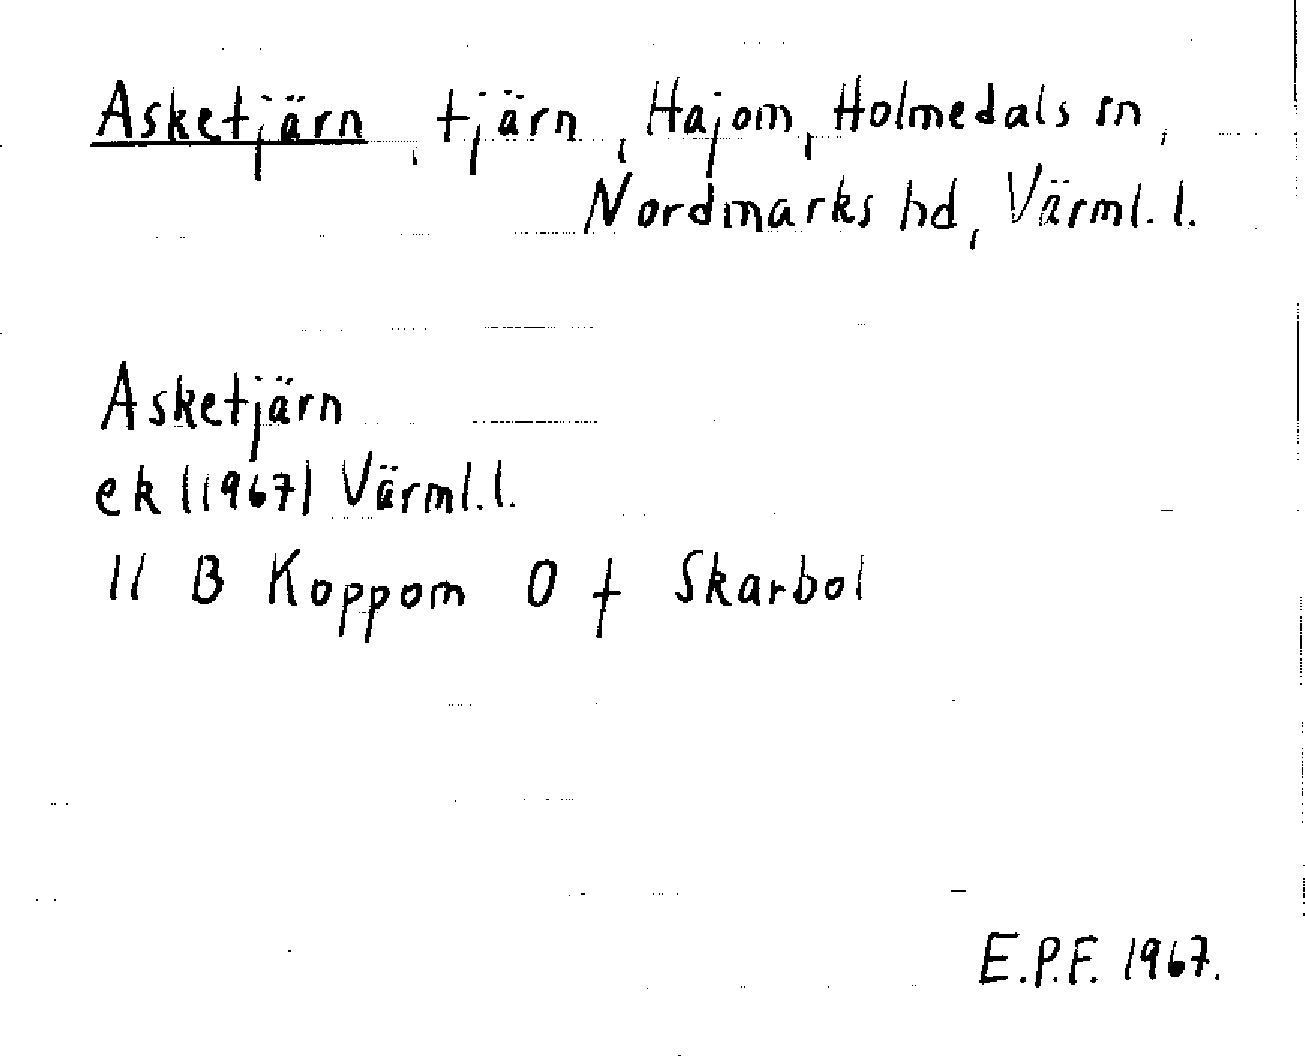 Asketjärn, tjärn, Hajom, Holmedals sn,
Nordmarks hd, Värml. l.
Asketjärn
ek (1967) Värml. l.
11 B Koppom 0 f Skarbol
E.P.F. 1967.